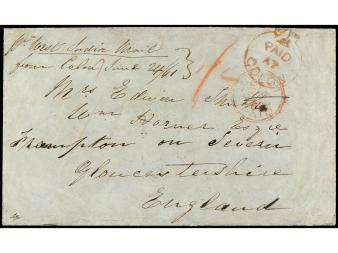 pr West India Mail
from Cuba June 24/61
Mrs Edwin Smith
Wm Horner Esqre
Frampton on Severn
Gloucestershire
England
PAID
COLO